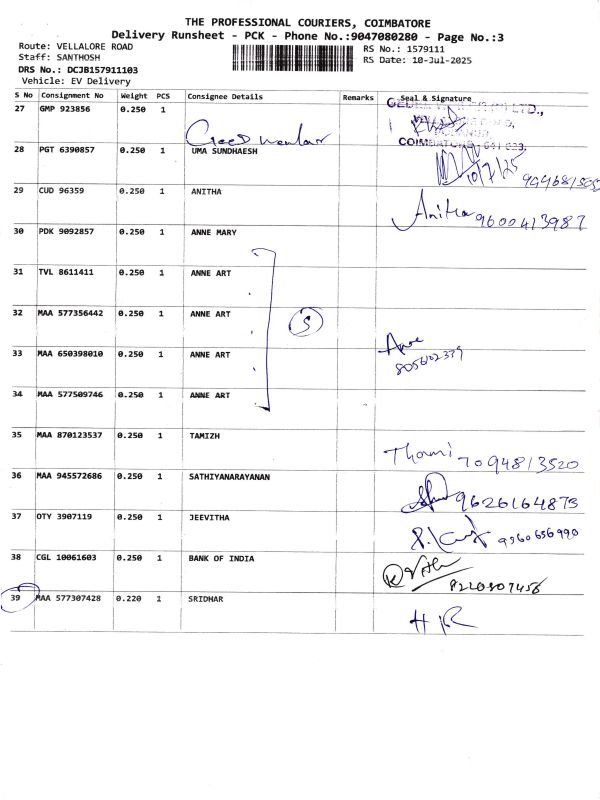 THE PROFESSIONAL COURIERS, COIMBATORE
Delivery Runsheet - PCK - Phone No.:9047080280 - Page No.:3
Route: VELLALORE ROAD
RS No.: 1579111
Staff: SANTHOSH
RS Date: 10-Jul-2025
DRS No.: DCJB157911103
Vehicle: EV Delivery
S No Consignment No Weight PCS Consignee Details Remarks Seal & Signature
27 GMP 923856 0.250 1
COIMBATORE - 641 023.
28 PGT 6390857 0.250 1 UMA SUNDHAESH
10/7/25
29 CUD 96359 0.250 1 ANITHA
Anitha 9600413987
30 PDK 9092857 0.250 1 ANNE MARY
31 TVL 8611411 0.250 1 ANNE ART
32 MAA 577356442 0.250 1 ANNE ART
5
33 MAA 650398010 0.250 1 ANNE ART
Anne
8056102339
34 MAA 577509746 0.250 1 ANNE ART
35 MAA 870123537 0.250 1 TAMIZH
7094813520
36 MAA 945572686 0.250 1 SATHIYANARAYANAN
9626164873
37 OTY 3907119 0.250 1 JEEVITHA
9360656990
38 CGL 10061603 0.250 1 BANK OF INDIA
39 MAA 577307428 0.220 1 SRIDHAR